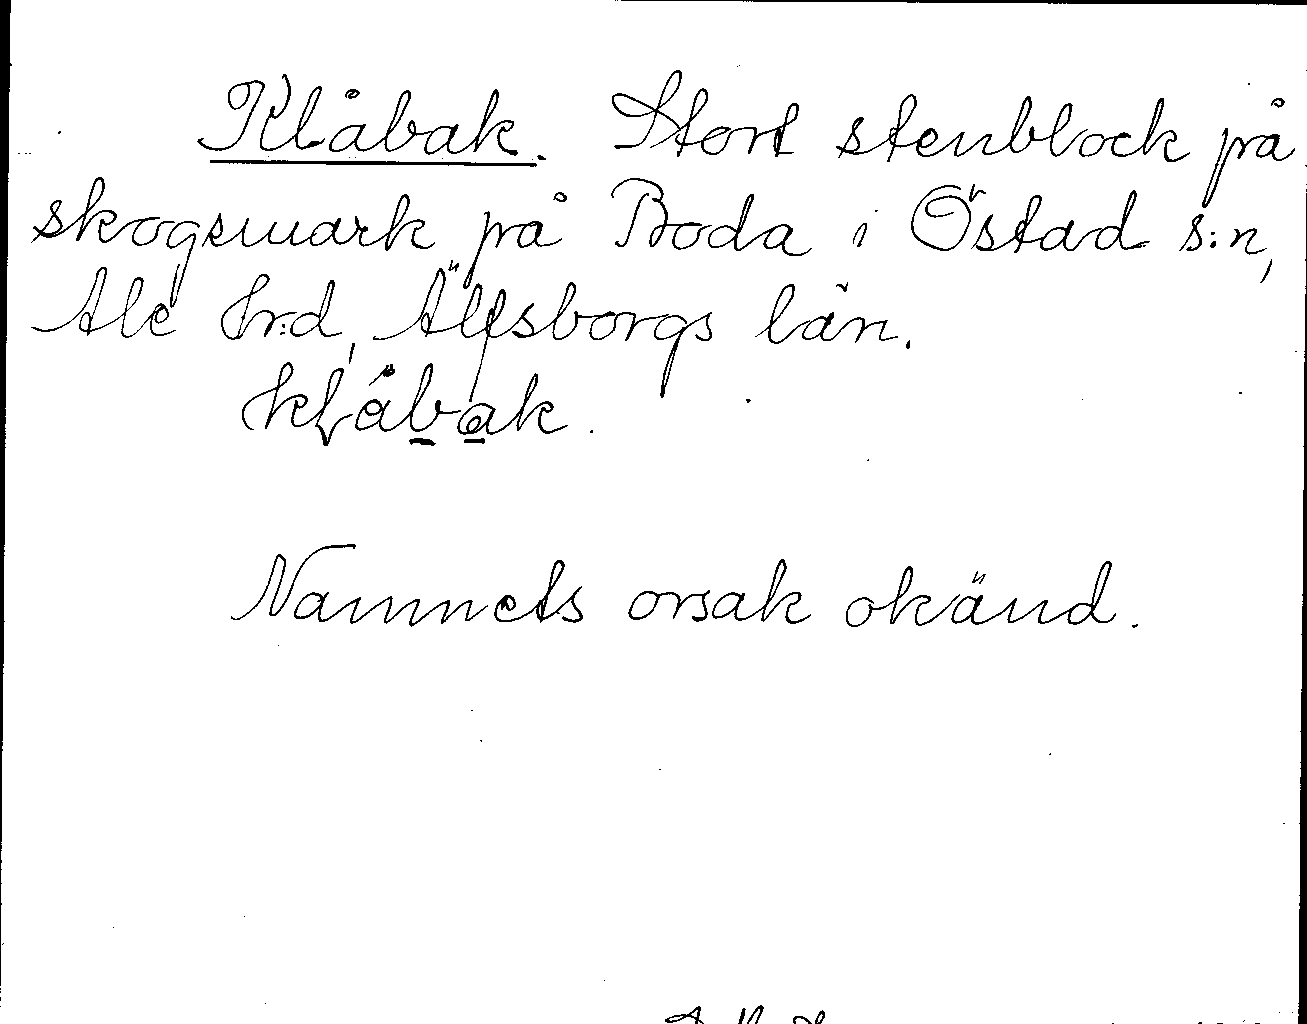 Klåbak. Stort stenblock på
skogsmark på Boda i Östad s:n,
Ale hr:d, Älfsborgs län.
klåbak.
Namnets orsak okänd.